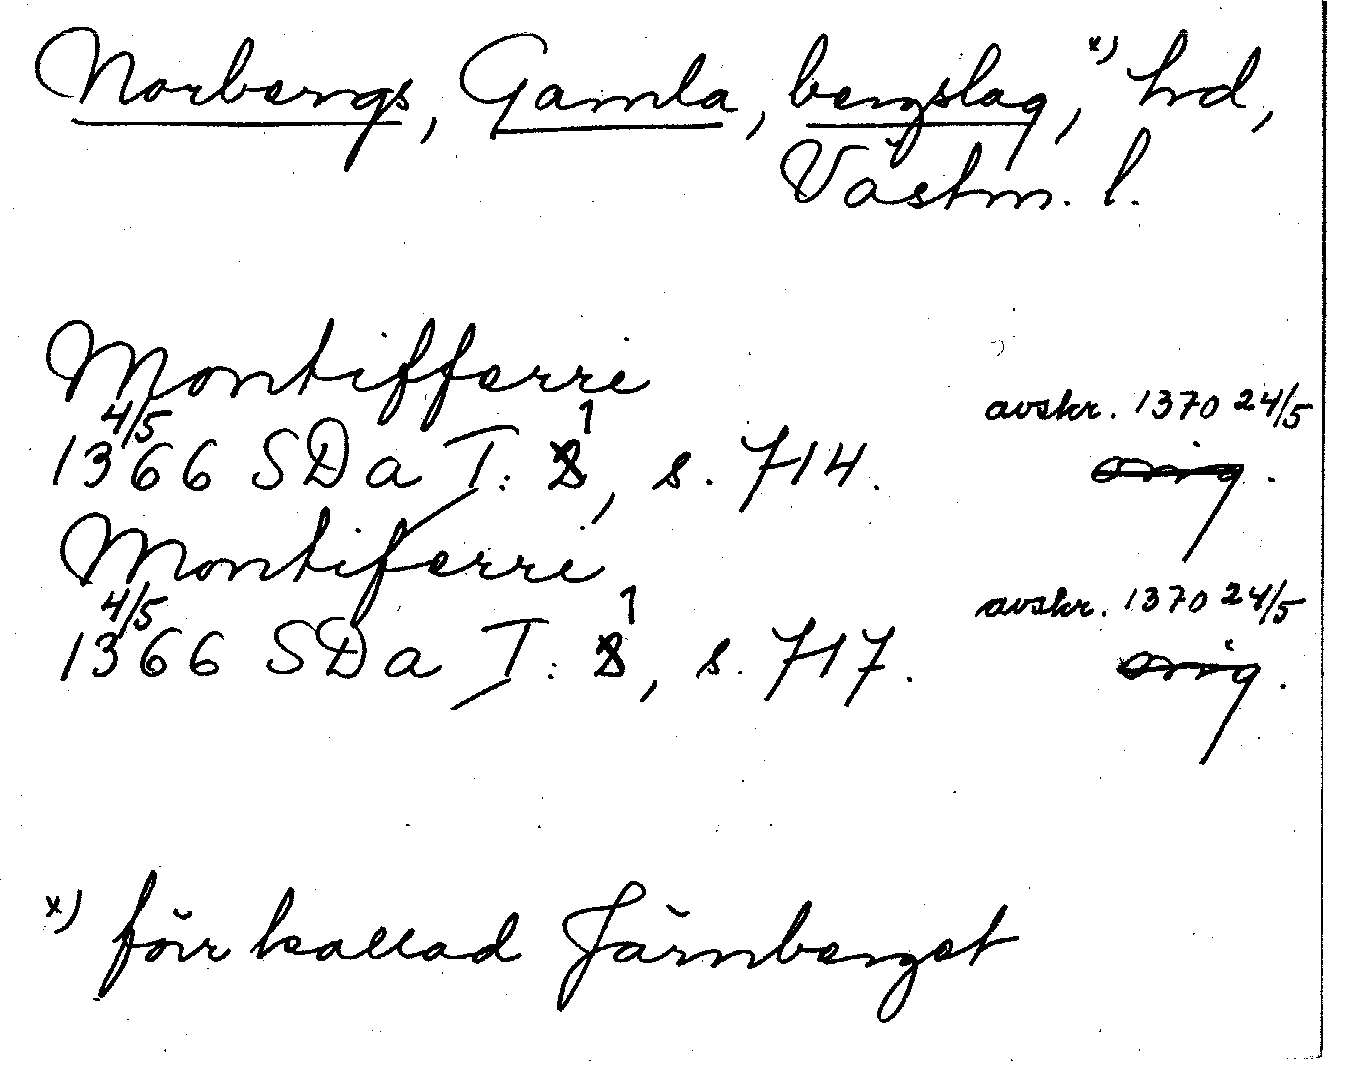 Norbergs, Gamla, bergslag, x) hd,
Västm. l.
Montifferre
avskr. 1370 24/5
4/5
1366 SDa T: 1, s. 714. orig.
Montiferre
avskr. 1370 24/5
4/5
1366 SDa T: 1, s. 717. orig.
x) förr kallad Järnberget